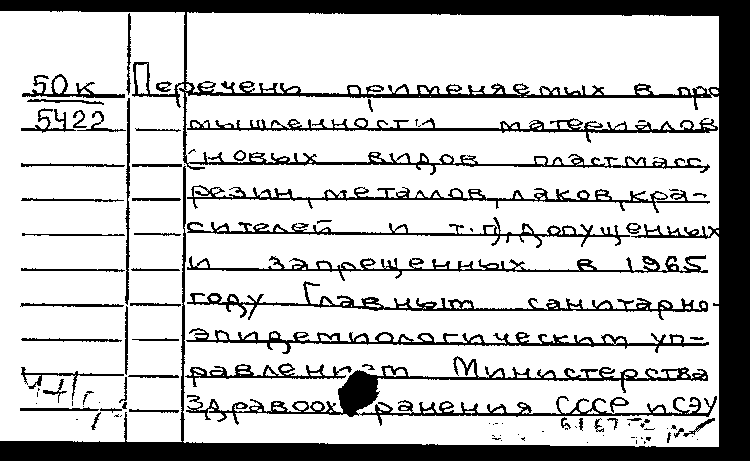 50к Перечень применяемых в про
5422 мышленности материалов
(новых видов пластмасс,
резин, металлов, лаков, кра-
сителей и т.п), допущенных
и запрещенных в 1965
году Главным санитарно-
эпидемиологическим уп-
равлением Министерства
Здравоохранения СССР и СЭУ